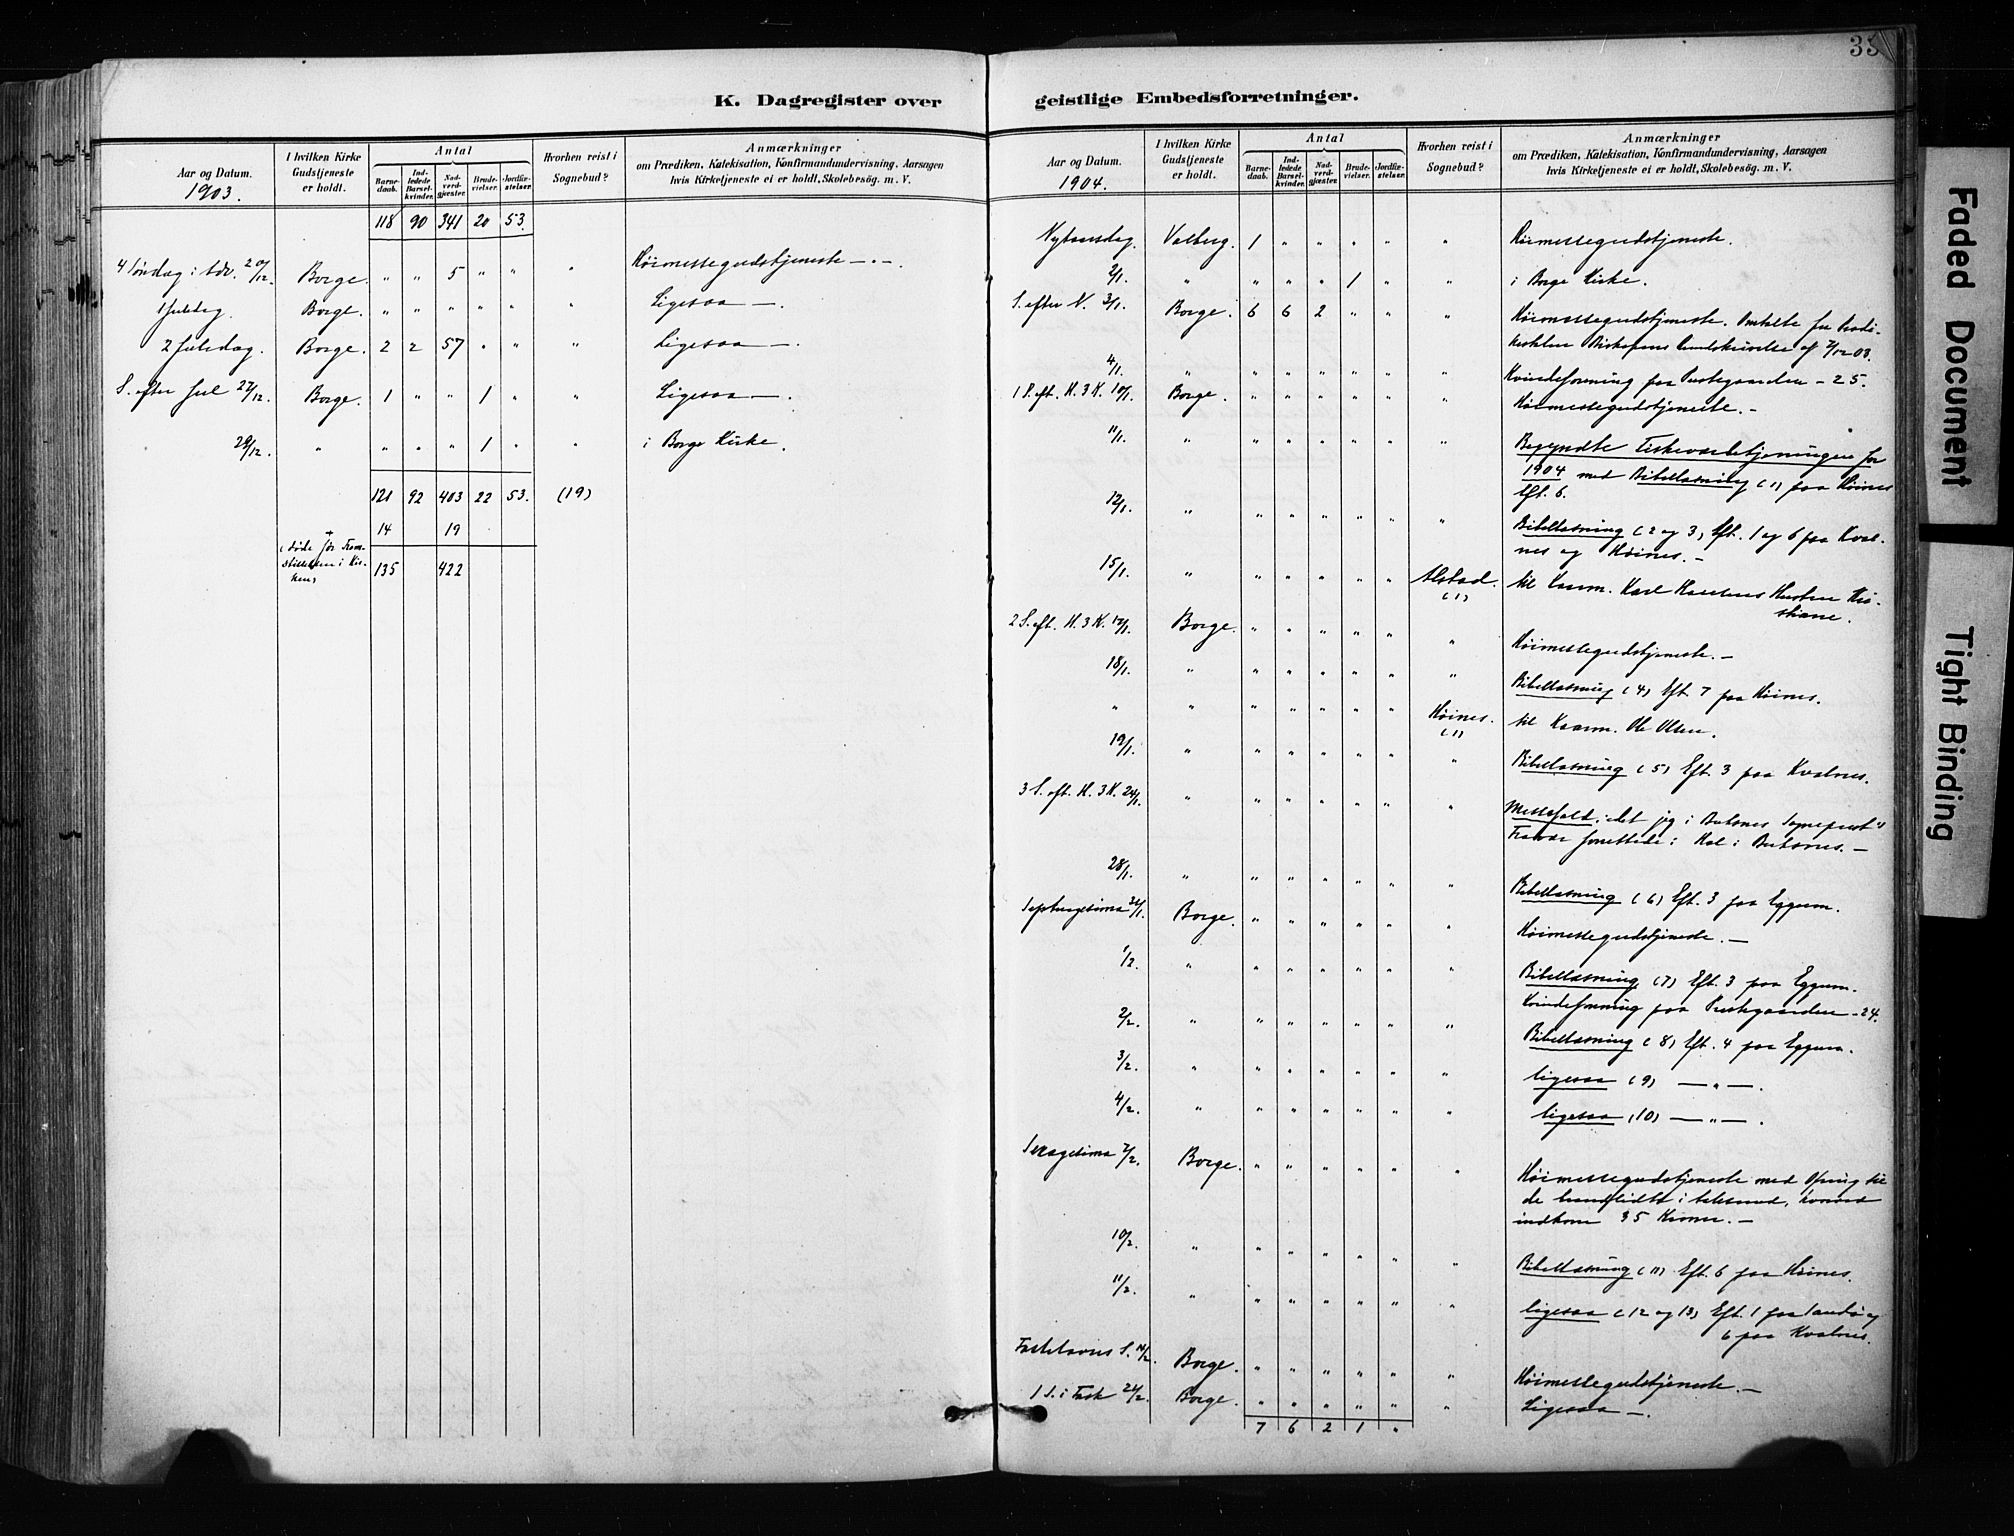 K. Dagregister over
Aar og Datum.
1903.
I hvilken Kirke Gudstjeneste er holdt.
Antal
Barnedaab.
Indledede Barselkvinder.
Nadverdgjester.
Brudevielser.
Jordfæstelser.
Hvorhen reist i Sognebud?
Anmærkninger
om Prædiken, Katekisation, Konfirmandundervisning, Aarsagen
hvis Kirketjeneste ei er holdt, Skolebesøg. m. V.
118 90 341 20 53.
4 Søndag i Adv. 20/12. Borge. " " 5 " " " Høimessegudstjeneste —"—.
1 Juledag. Borge. " " " " " " Ligesaa —.
2 Juledag. Borge. 2 2 57 " " " Ligesaa —.
S. efter Jul 27/12. Borge. 1 " " 1 " " Ligesaa —.
29/12. " " " " 1 " " i Borge Kirke.
121 92 403 22 53. (19)
14 19
(døde før Frem-
stillelsen i Kir-
ken)
135 422
geistlige Embedsforretninger.
33
Aar og Datum.
1904.
I hvilken Kirke Gudstjeneste er holdt.
Antal
Barnedaab.
Indledede Barselkvinder.
Nadverdgjester.
Brudevielser.
Jordfæstelser.
Hvorhen reist i Sognebud?
Anmærkninger
om Prædiken, Katekisation, Konfirmandundervisning, Aarsagen
hvis Kirketjeneste ei er holdt, Skolebesøg. m. V.
Nytaarsdag. Valberg. 1 " " " " " Høimessegudstjeneste.
2/1. " " " " 1 " " i Borge Kirke.
S. efter N. 3/1. Borge. 6 6 2 " " " Høimessegudstjeneste. Omtalte fra
Biskopens Rundskrivelse af 7/12 03.
4/1. " " " " " " " Kvindeforening paa Prestegaarden - 25.
1 S. eft. H. 3 K. 10/1. Borge. " " " " " " Høimessegudstjeneste. —
11/1. " " " " " " " Begyndte Fiskeværbetjeningen for
1904 med Bibellæsning (1) paa Høines
Eft. 6.
12/1. " " " " " " " Bibellæsning (2 og 3) Eft. 1 og 6 paa Kval-
nes og Høines. —
15/1. " " " " " " Alstad. (1) til Kaarm. Karl Karelius Hustru Kri-
stiane.
2 S. eft. H. 3 K. 17/1. Borge. " " " " " " Høimessegudstjeneste. —
18/1. " " " " " " " Bibellæsning (4) Eft. 7 paa Høines.
" " " " " " " Høines. (1) til Kaarm. Ole Olsen.
19/1. " " " " " " " Bibellæsning (5) Eft. 3 paa Kvalnes.
3 S. eft. H. 3 K. 24/1. " " " " " " " Messefald, idet jeg i Buksnes Sogneprest's
Fravær forrettede i Hol i Buksnes. —
28/1. " " " " " " " Bibellæsning (6) Eft. 3 paa Eggum.
Septuagesima 31/1. Borge. " " " " " " Høimessegudstjeneste. —
1/2. " " " " " " " Bibellæsning (7) Eft. 3 paa Eggum.
Kvindeforening paa Prestegaarden - 24.
2/2. " " " " " " " Bibellæsning (8) Eft. 4 paa Eggum.
3/2. " " " " " " " ligesaa (9) —"—.
4/2. " " " " " " " ligesaa (10) —"—.
Sexagesima 7/2. Borge. " " " " " " Høimessegudstjeneste med Ofring til
de brandlidte i Aalesund, hvorved
indkom 35 Kroner. —
10/2. " " " " " " " Bibellæsning (11) Eft. 6 paa Høines.
11/2. " " " " " " " ligesaa (12 og 13) Eft. 1 paa Sandø og
6 paa Kvalnes.
Fastelavns S. 14/2. Borge. " " " " " " Høimessegudstjeneste. —
1 S. i Fast 21/2. Borge. " " " " " " Ligesaa —.
7 6 2 1 "
Faded Document
Tight Binding